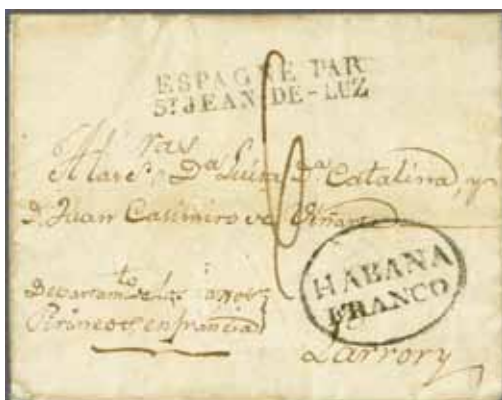 ESPAGNE PAR
ST JEAN-DE-LUZ
ras
A las Sras Da Luisa, Da Catalina, y
Dn Juan Casimiro de
HABANA
FRANCO
Departamto de los
Pirineos en francia
Larrory